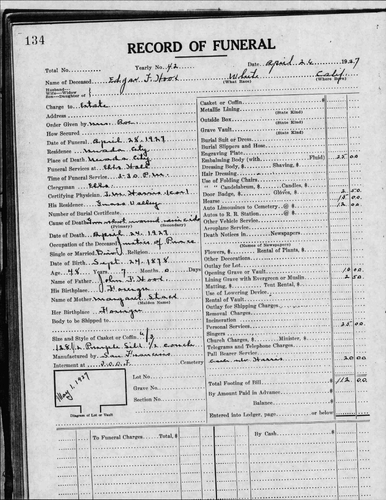 134
RECORD OF FUNERAL
Total No. Yearly No. 42 Date April 26 1927
Name of Deceased Edgar T. Hook White Calif
(What Race) (Where Born)
Husband—
Wife—Widow
Son—Daughter of
Charge to Estate
Address
Order Given by Mrs.
How Secured
Date of Funeral April 28, 1927
Residence Nevada City
Place of Death Nevada City
Funeral Services at Elks Hall
Time of Funeral Service 2:30 P.M.
Clergyman Elks
Certifying Physician (cor)
His Residence Grass Valley
Number of Burial Certificate
Cause of Death Gunshot wound suicide
(Primary) (Secondary)
Date of Death April 24, 1927
Occupation of the Deceased Justice of Peace
Single or Married Religion
Date of Birth Sept. 24, 1878
Age 48 Years 7 Months 0 Days
Name of Father John T. Hook
His Birthplace
Name of Mother Margaret
(Maiden Name)
Her Birthplace
Body to be Shipped to
Size and Style of Casket or Coffin 6/3
1/2 couch
Manufactured by San Francisco
Interment at I.O.O.F. Cemetery
May 1, 1927
Lot No.
Grave No.
Section No.
Diagram of Lot or Vault
Casket or Coffin $
Metallic Lining
(State Kind)
Outside Box
(State Kind)
Grave Vault
(State Kind)
Burial Suit or Dress
Burial Slippers and Hose
Engraving Plate
Embalming Body (with Fluid) 25 00
Dressing Body, $ Shaving, $
Hair Dressing
Use of Folding Chairs
" " Candelabrum, $ Candles, $
Door Badge, $ Gloves, $ 2 50
Hearse 15 00
Auto Limousines to Cemetery @ $ 12 00
Autos to R. R. Station @ $
Other Vehicle Service
Aeroplane Service
Death Notices in Newspapers
(Names of Newspapers)
Flowers, $ Rental of Plants, $
Other Decorations
Outlay for Lot
Opening Grave or Vault 10 00
Lining Grave with Evergreen or Muslin 2 50
Matting, $ Tent Rental, $
Use of Lowering Device
Rental of Vault
Outlay for Shipping Charges
Removal Charges
Incineration
Personal Services 25 00
Singers
Church Charges, $ Minister, $
Telegrams and Telephone Charges
Pall Bearer Service
20 00
Total Footing of Bill $ 112 00
By Amount Paid in Advance
Balance $
Entered into Ledger, page or below
To Funeral Charges Total, $
By Cash $